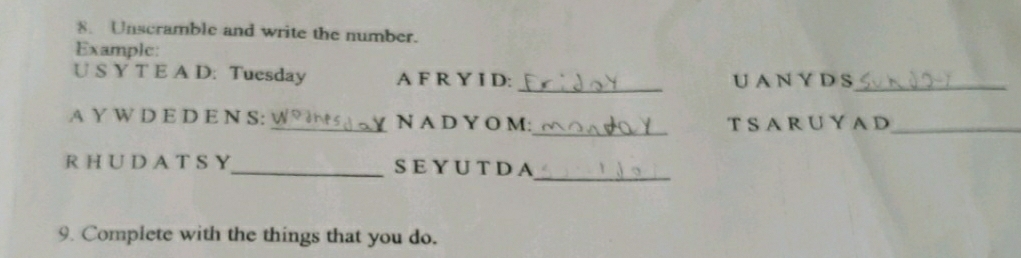 8. Unscramble and write the number.
Example:
USYTEAD: Tuesday AFRYID: Friday UANYDS sunday
AYWDEDENS: Wednesday NADYOM: monday TSARUYAD
RHUDATSY SEYUTDA
9. Complete with the things that you do.